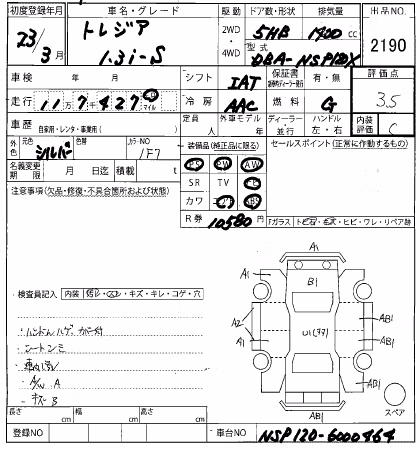 初度登録年月 車名・グレード 駆動 ドア数・形状 排気量 出品NO.
23/3月 トレジア 1.3i-S 2WD・4WD 5HB 1300 cc 2190
型式 DBA-NSP120X
車検 年 月 シフト IAT 保証書 有・無 評価点
走行 11万7千427 km マイル 冷房 AAC 燃料 G 3.5
車歴 自家用・レンタ・事業用( ) 定員 人 外車モデル 年 ディーラー・並行 ハンドル 左・右 内装評価 C
外色 元色 シルバー 色替 カラーNO 1F7 装備品(純正品に限る) セールスポイント(正常に作動するもの)
名義変更期限 月 日迄 積載 t PS PW
注意事項(欠品・修復・不具合箇所および状態) SR TV
カワ
R券 10580円 Fガラス トビ石・キズ・ヒビ・ワレ・リペア跡
検査員記入 内装
ハンドルハゲ
シートシミ
車内汚レ
A/W A
キズ B
A1
A1 B1 A1
A2 A1 U1 AB1
AB1
AB1
スペア
長さ cm 幅 cm 高さ cm
登録NO 車台NO NSP120-6000464